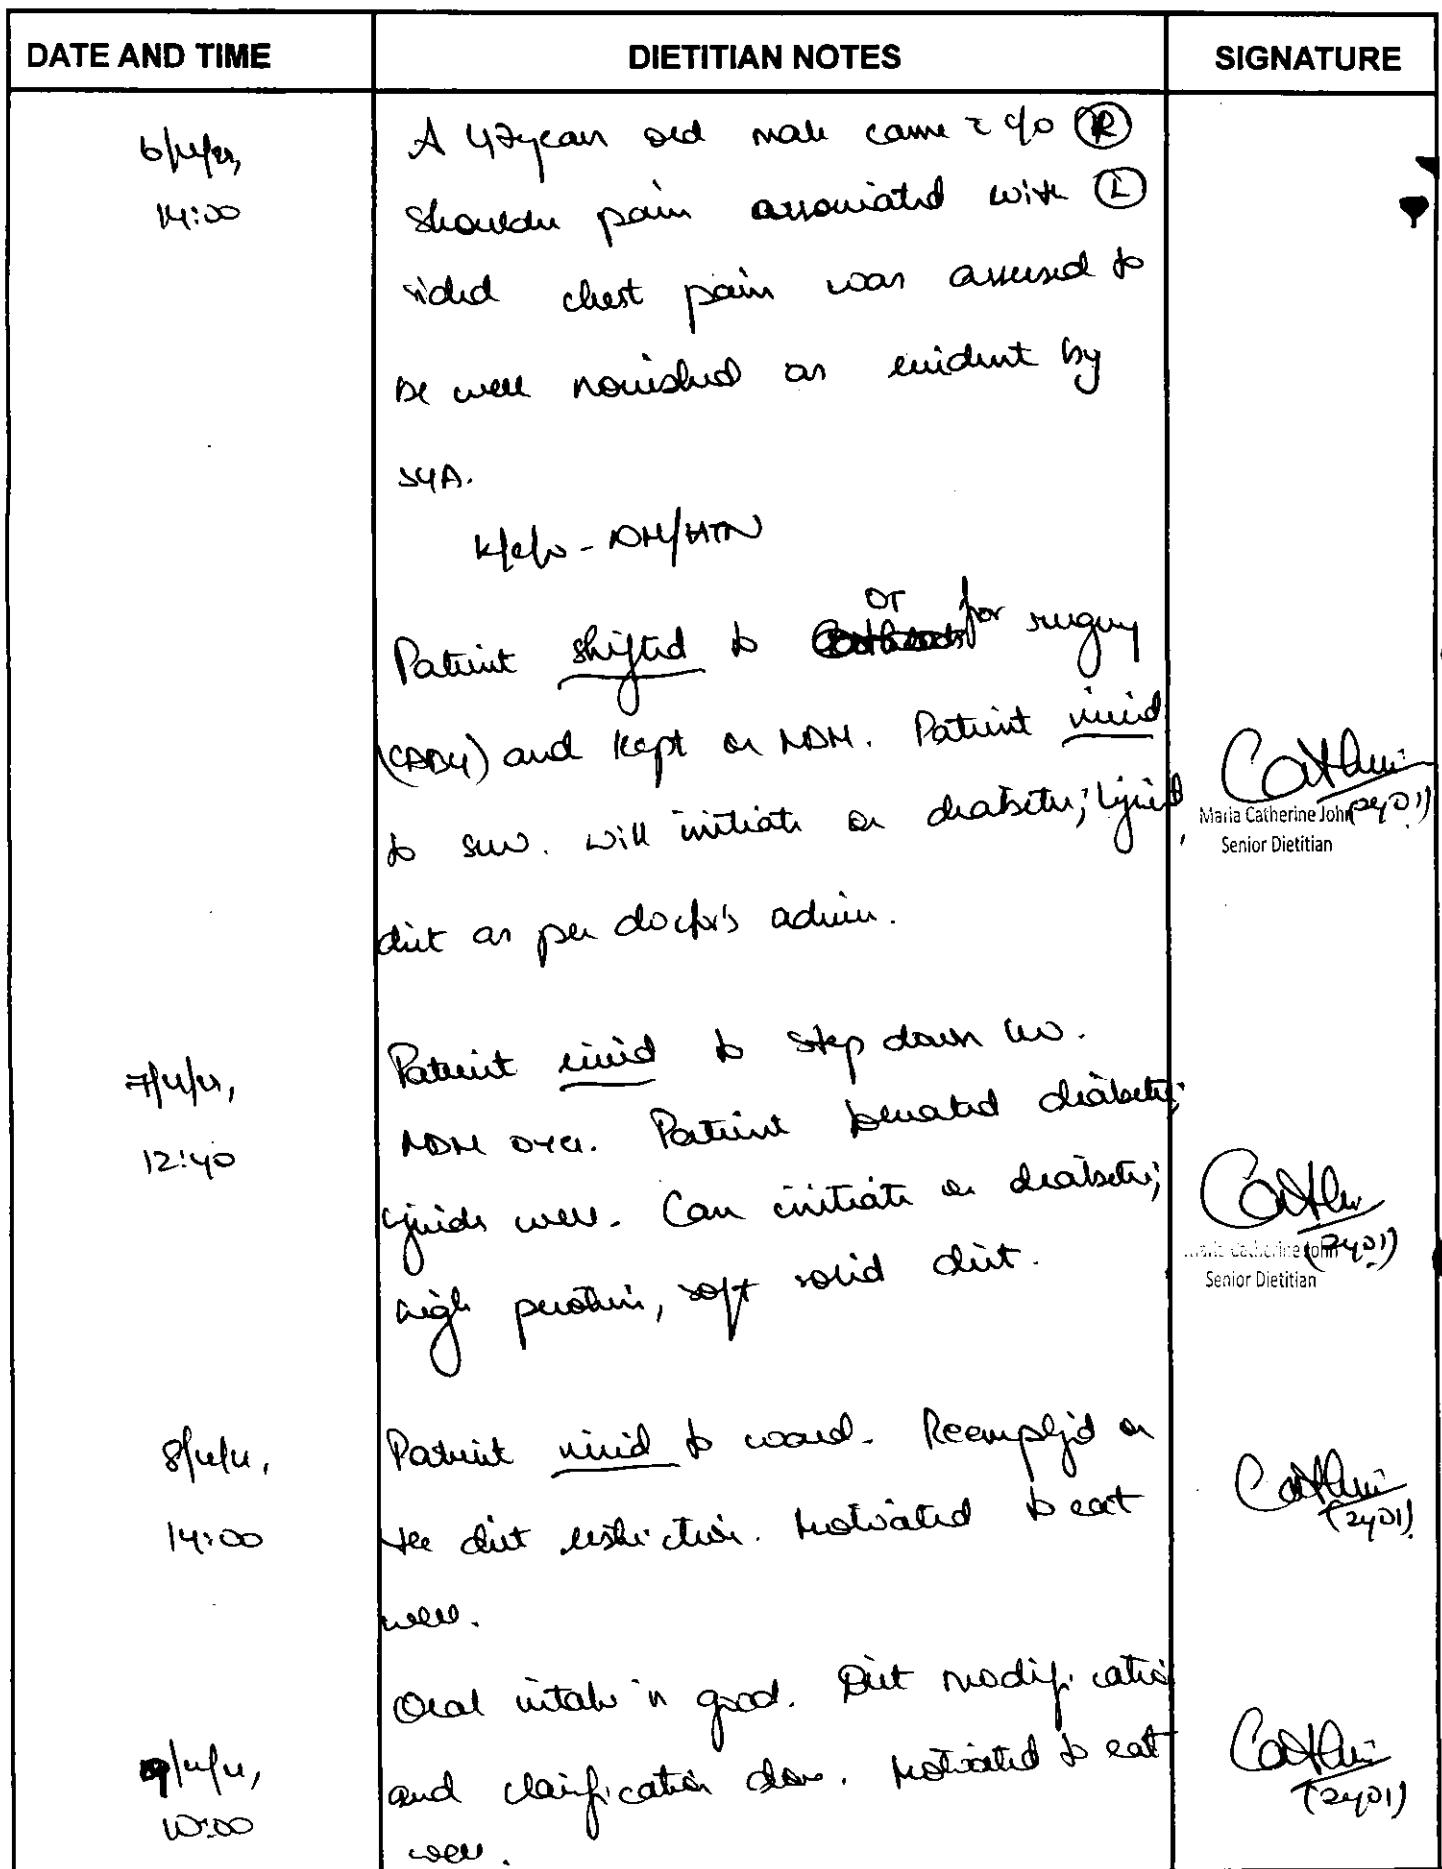 DATE AND TIME DIETITIAN NOTES SIGNATURE
14:00
A 42 year old male came c̄ c/o Ⓡ
shoulder pain associated with Ⓛ
sided chest pain was assessed to
be well nourished as evident by
SGA.
k/c/o - DM/HTN
OT
Patient shifted to for surgery
(CABG) and kept on NBM. Patient
to will initiate on diabetic, liquid
diet as per doctor's advice.
Maria Catherine John
Senior Dietitian
12:40
Patient to step down
NBM over. Patient tolerated diabetic,
liquids well. Can initiate on diabetic,
high protein, soft solid diet.
Maria Catherine John
Senior Dietitian
14:00
Patient to ward. on
the diet restriction. Motivated to eat
well.
10:00
Oral intake is good. Diet modification
and clarification done. Motivated to eat
well.